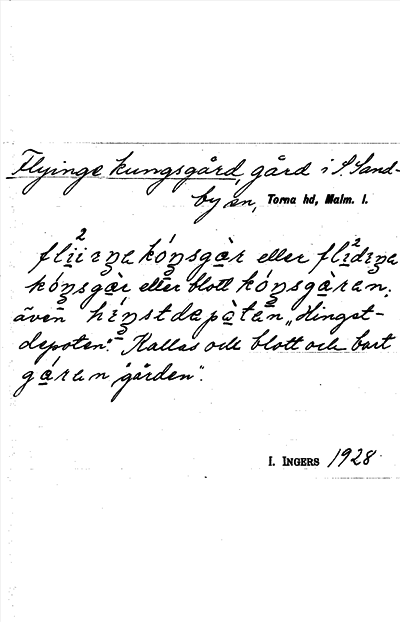 Flyinge kungsgård, gård i S. Sand-
by sn, Torna hd, Malm. l.
flìi̯ŋa kóŋsgàr eller flìdiŋa
kóŋsgàr eller blott kóŋsgàran;
även híŋstdepåtan „Hingst-
depoten". Kallas ock blott och bart
gáran „gården".
I. INGERS 1928